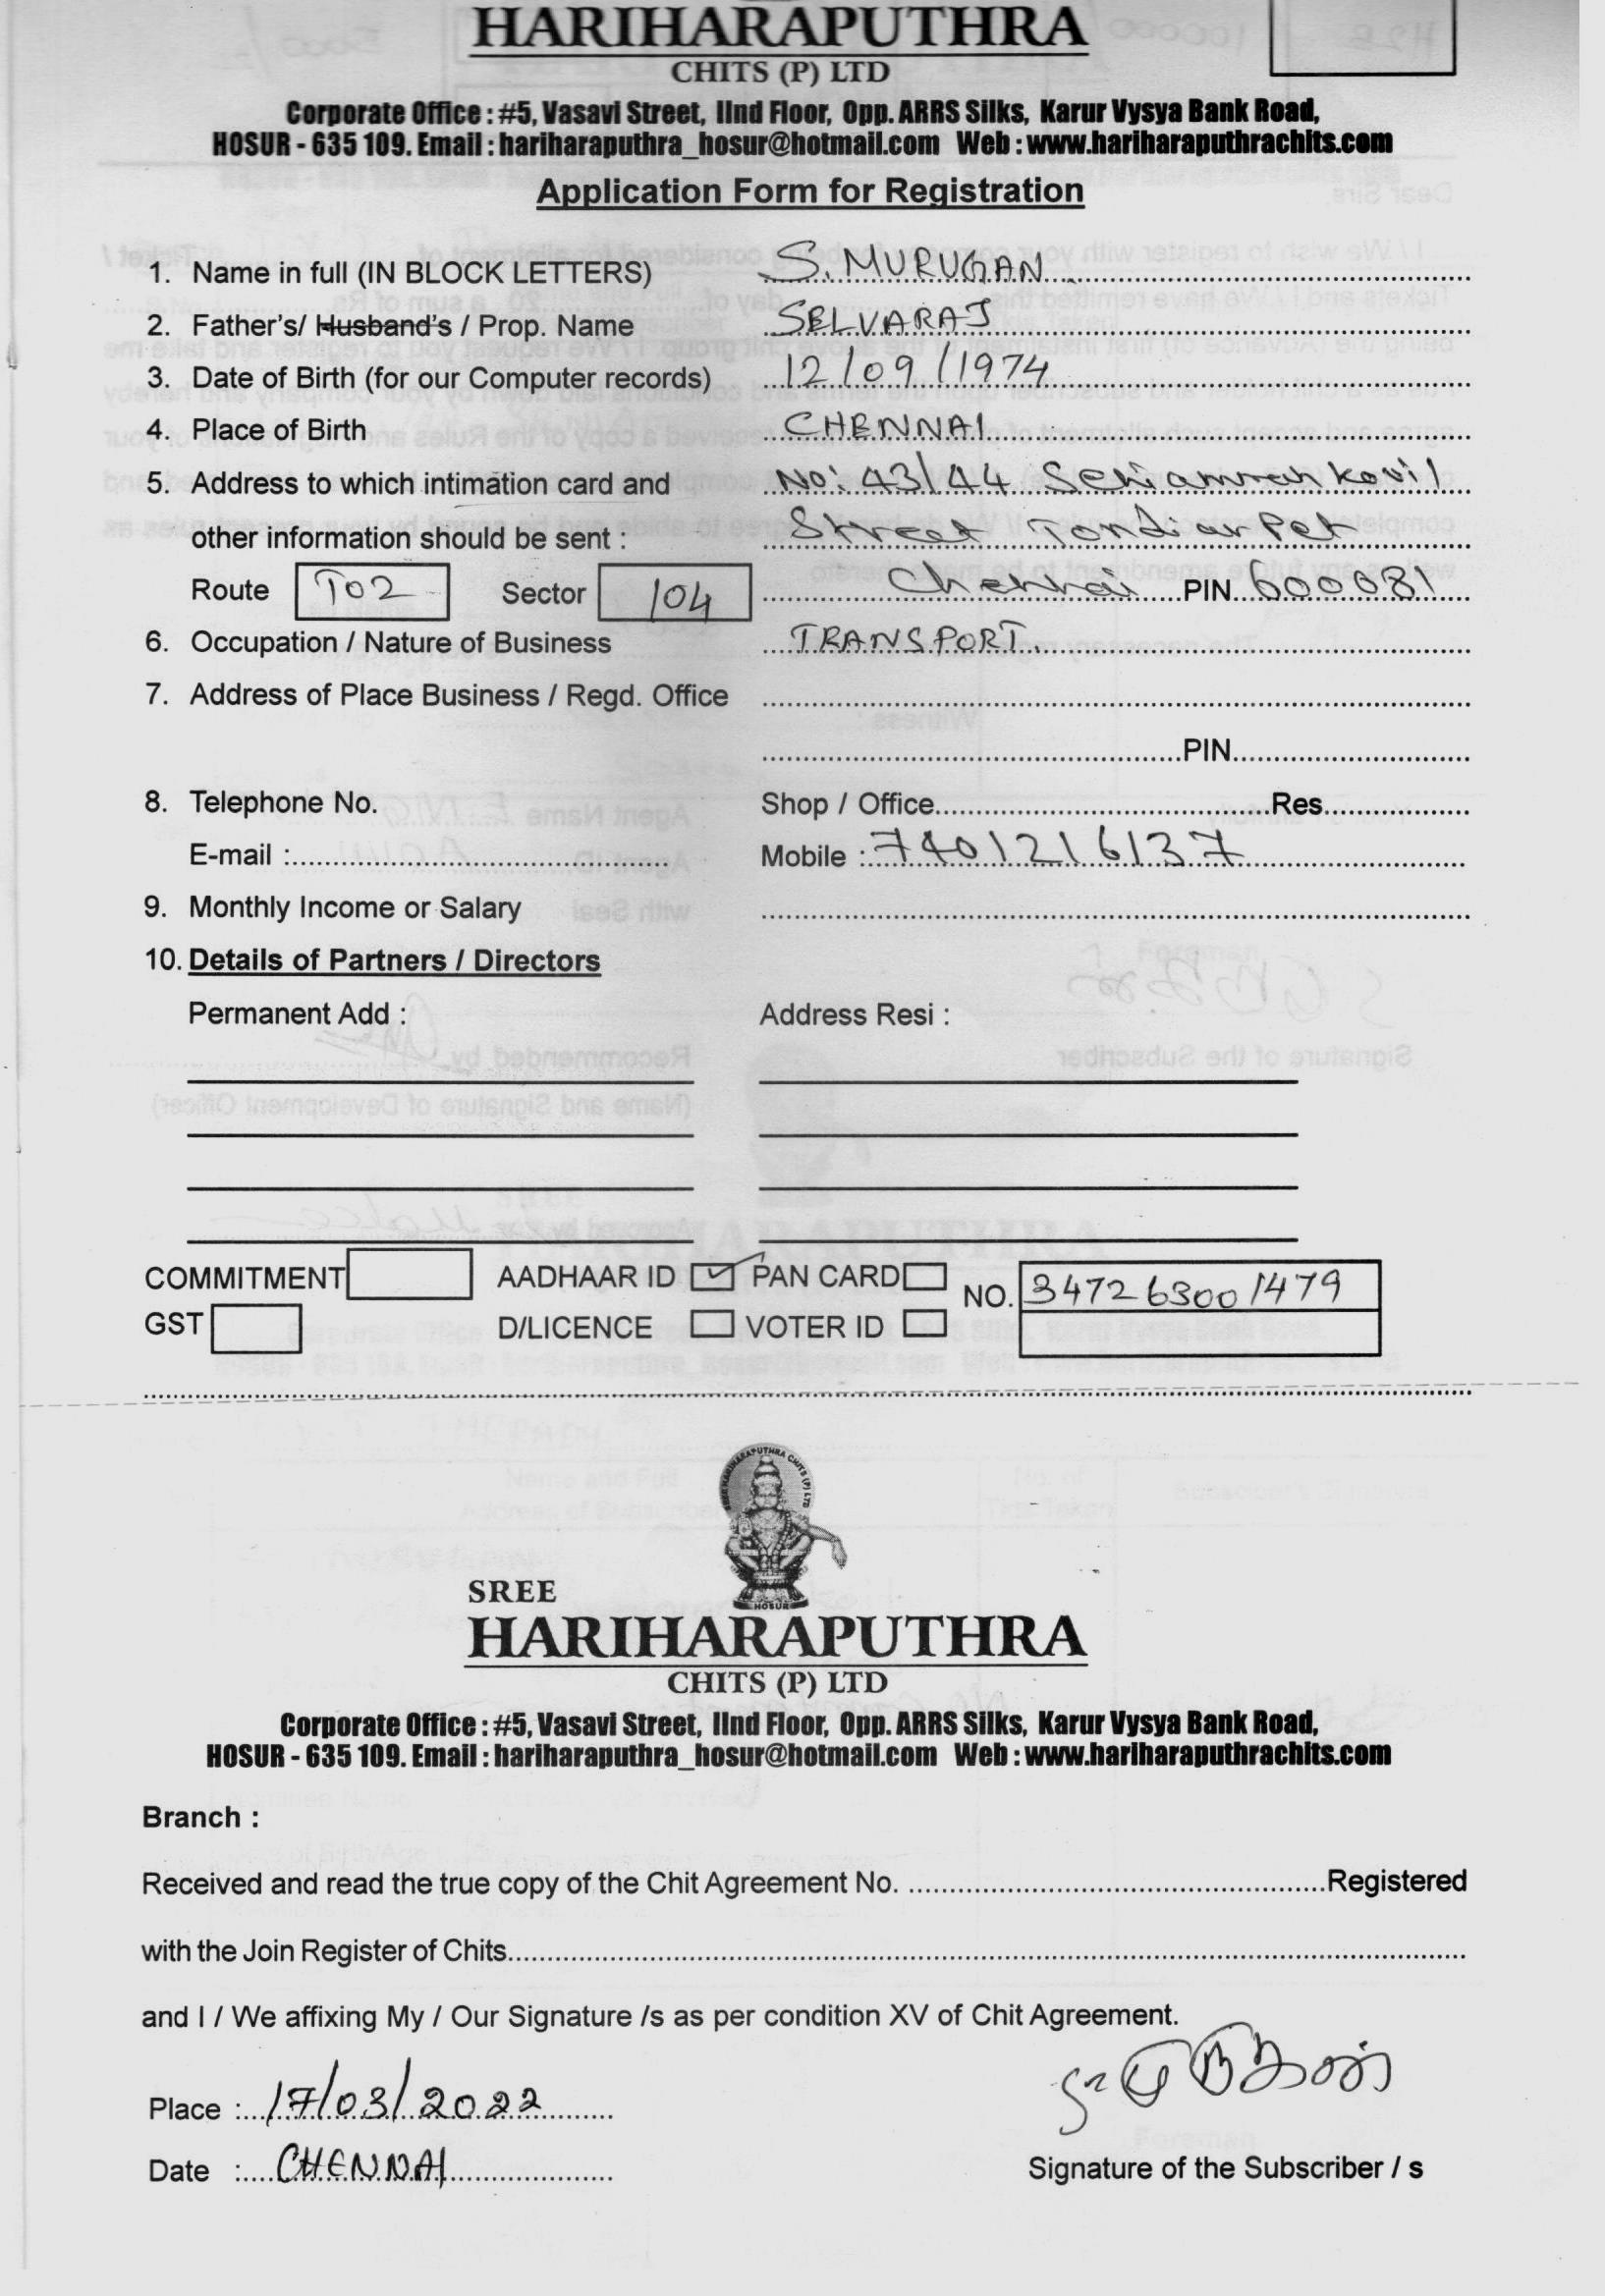 HARIHARAPUTHRA
CHITS (P) LTD
Corporate Office : #5, Vasavi Street, IInd Floor, Opp. ARRS Silks, Karur Vysya Bank Road,
HOSUR - 635 109. Email : hariharaputhra_hosur@hotmail.com Web : www.hariharaputhrachits.com
Application Form for Registration
1. Name in full (IN BLOCK LETTERS) S. MURUGAN
2. Father's/ Husband's / Prop. Name SELVARAJ
3. Date of Birth (for our Computer records) 12/09/1974
4. Place of Birth CHENNAI
5. Address to which intimation card and No: 43/44 Kovil
other information should be sent : Street Tondiarpet
Route T02 Sector 104 Chennai PIN 600081
6. Occupation / Nature of Business TRANSPORT
7. Address of Place Business / Regd. Office
PIN
8. Telephone No. Shop / Office Res.
E-mail : Mobile : 7401216137
9. Monthly Income or Salary
10. Details of Partners / Directors
Permanent Add : Address Resi :
COMMITMENT AADHAAR ID ✓ PAN CARD NO. 347263001479
GST D/LICENCE VOTER ID
SREE HARIHARAPUTHRA CHITS (P) LTD
HOSUR
SREE
HARIHARAPUTHRA
CHITS (P) LTD
Corporate Office : #5, Vasavi Street, IInd Floor, Opp. ARRS Silks, Karur Vysya Bank Road,
HOSUR - 635 109. Email : hariharaputhra_hosur@hotmail.com Web : www.hariharaputhrachits.com
Branch :
Received and read the true copy of the Chit Agreement No. Registered
with the Join Register of Chits
and I / We affixing My / Our Signature /s as per condition XV of Chit Agreement.
Place : 17/03/2022
Date : CHENNAI
Signature of the Subscriber / s